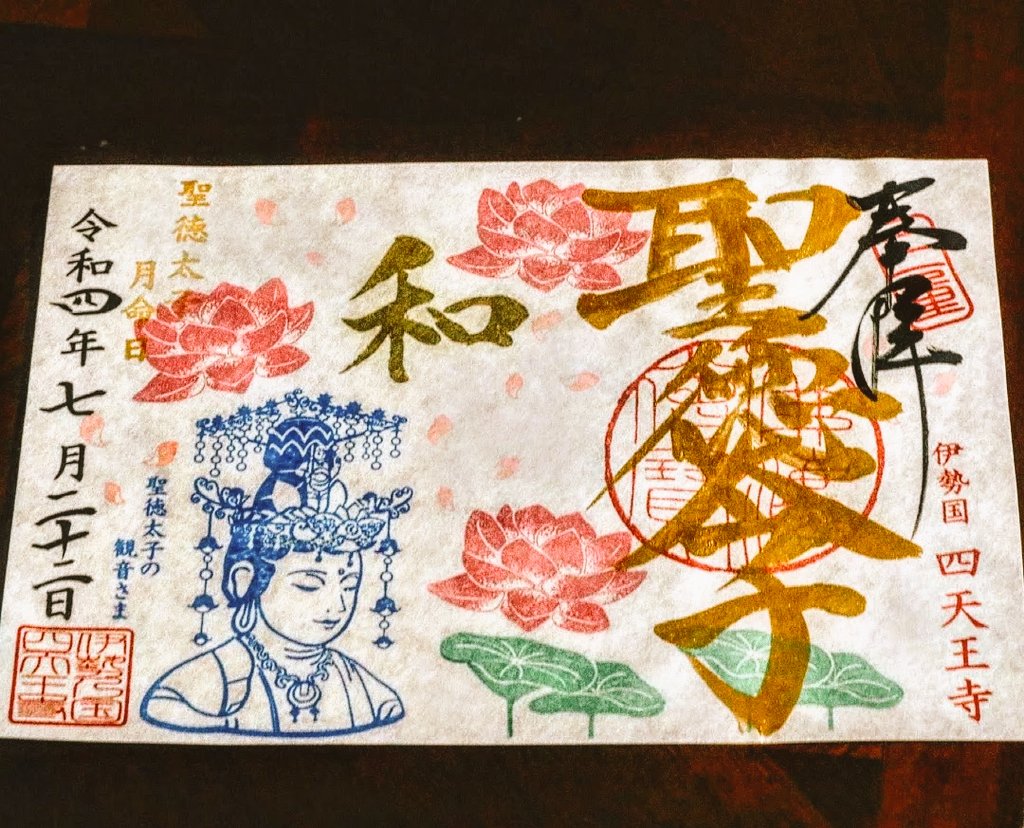 奉拝
伊勢国 四天王寺
聖徳太子
和
聖徳太子
月命日
聖徳太子の
観音さま
令和四年七月二十二日